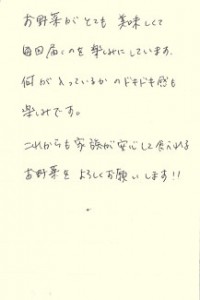 お野菜がとても美味しくて
毎回届くのを楽しみにしています。
何が入っているかのドキドキ感も
楽しみです。
これからも家族が安心して食べれる
お野菜をよろしくお願いします!!